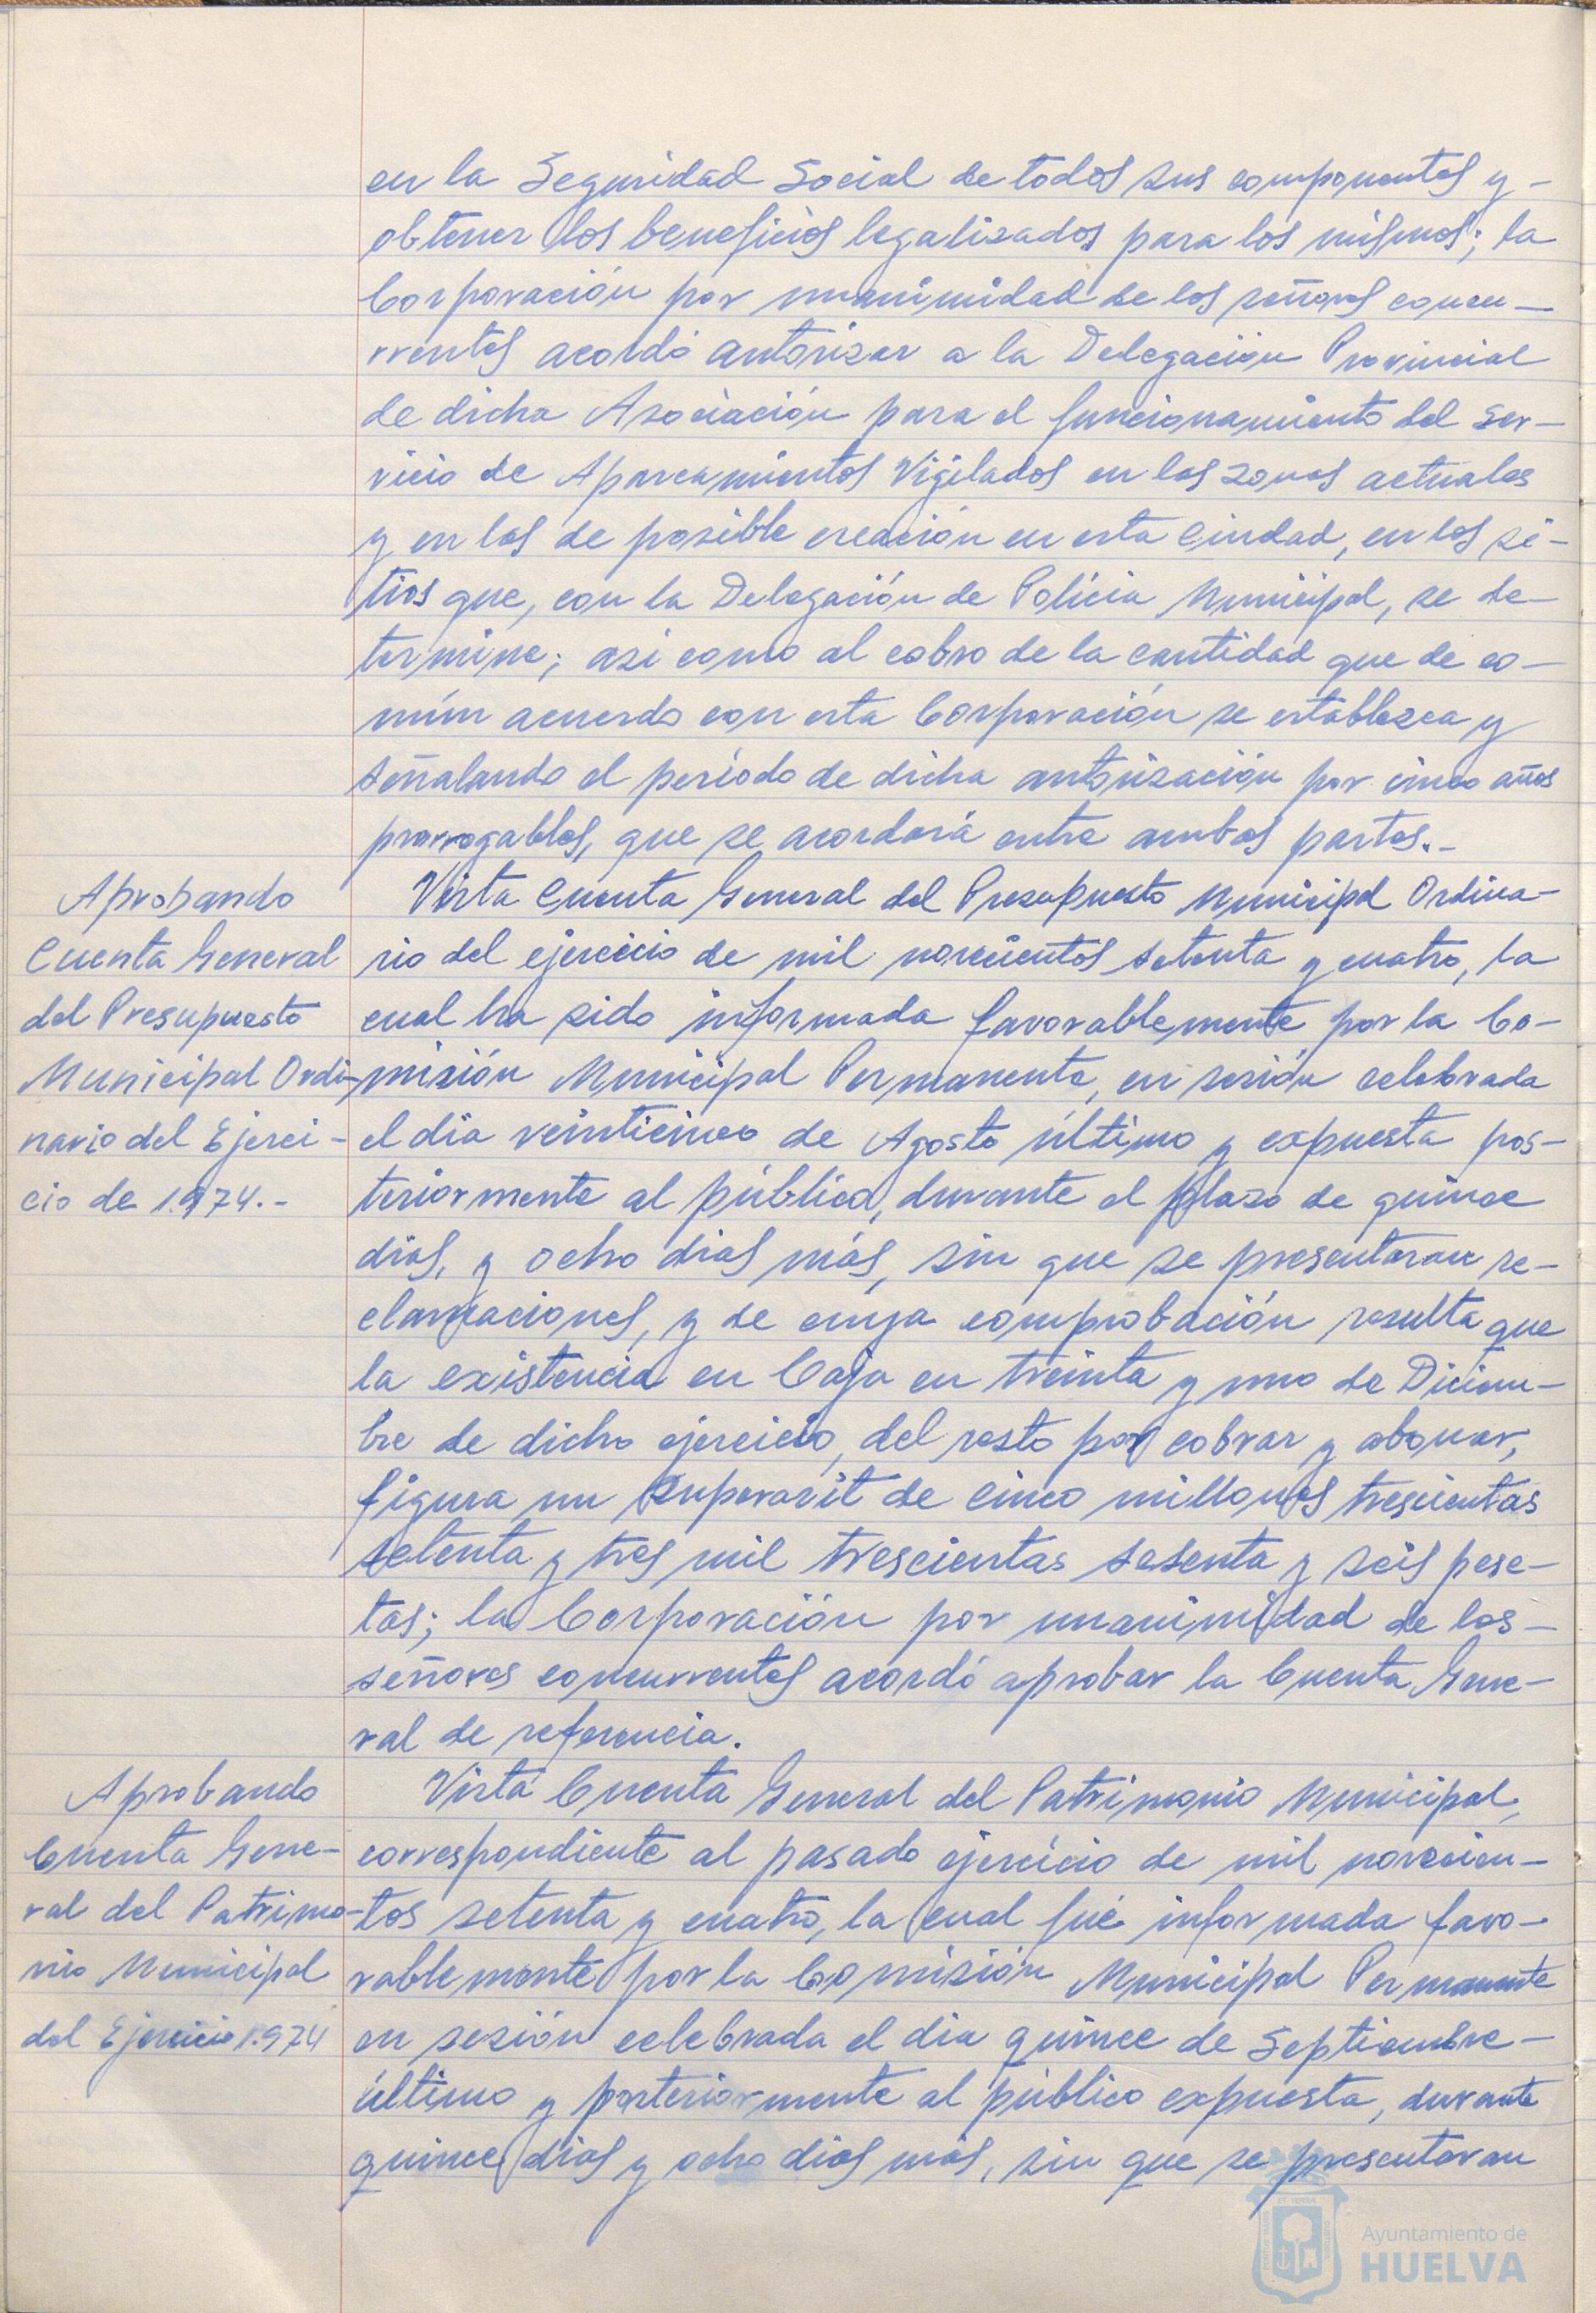 en la Seguridad Social de todos sus componentes y -
obtener los beneficios legalizados para los mismos; la
Corporación por unanimidad de los señores concu-
rrentes acordó autorizar a la Delegación Provincial
de dicha Asociación para el funcionamiento del Ser-
vicio de Aparcamientos Vigilados en las zonas actuales
y en las de posible creación en esta Ciudad, en los si-
tios que, con la Delegación de Policía Municipal, se de-
termine; asi como al cobro de la cantidad que de co-
mún acuerdo con esta Corporación se establezca y
señalando el período de dicha autorización por cinco años
prorrogables, que se acordará entre ambas partes.-
Aprobando
Cuenta General
del Presupuesto
Municipal Ordi-
nario del Ejerci-
cio de 1.974.-
Vista Cuenta General del Presupuesto Municipal Ordina-
rio del ejercicio de mil novecientos setenta y cuatro, la
cual ha sido informada favorablemente por la Co-
misión Municipal Permanente, en sesión celebrada
el dia veinticinco de Agosto último y expuesta pos-
teriormente al público, durante el plazo de quince
dias, y ocho dias más, sin que se presentaran re-
clamaciones, y de cuya comprobación resulta que
la existencia en Caja en treinta y uno de Diciem-
bre de dicho ejercicio, del resto por cobrar y abonar,
figura un Superavit de cinco millones trescientas
setenta y tres mil trescientas sesenta y seis pese-
tas; la Corporación por unanimidad de los-
señores concurrentes acordó aprobar la Cuenta Gene-
ral de referencia.
Aprobando
Cuenta Gene-
ral del Patrimo-
nio Municipal
del Ejercicio 1.974
Vista Cuenta General del Patrimonio Municipal,
correspondiente al pasado ejercicio de mil novecien-
tos setenta y cuatro, la cual fué informada favo-
rablemente por la Comisión Municipal Permanente
en sesión celebrada el dia quince de Septiembre-
último y posteriormente al público expuesta, durante
quince dias y ocho dias más, sin que se presentaran
Ayuntamiento de
HUELVA